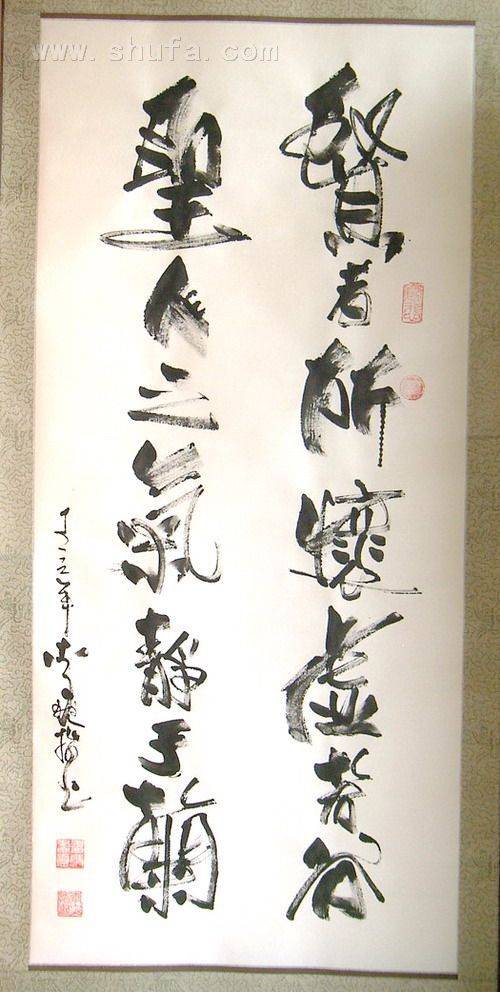 www.shufa.com
賢者所懷虛若谷
聖人之氣靜于蘭